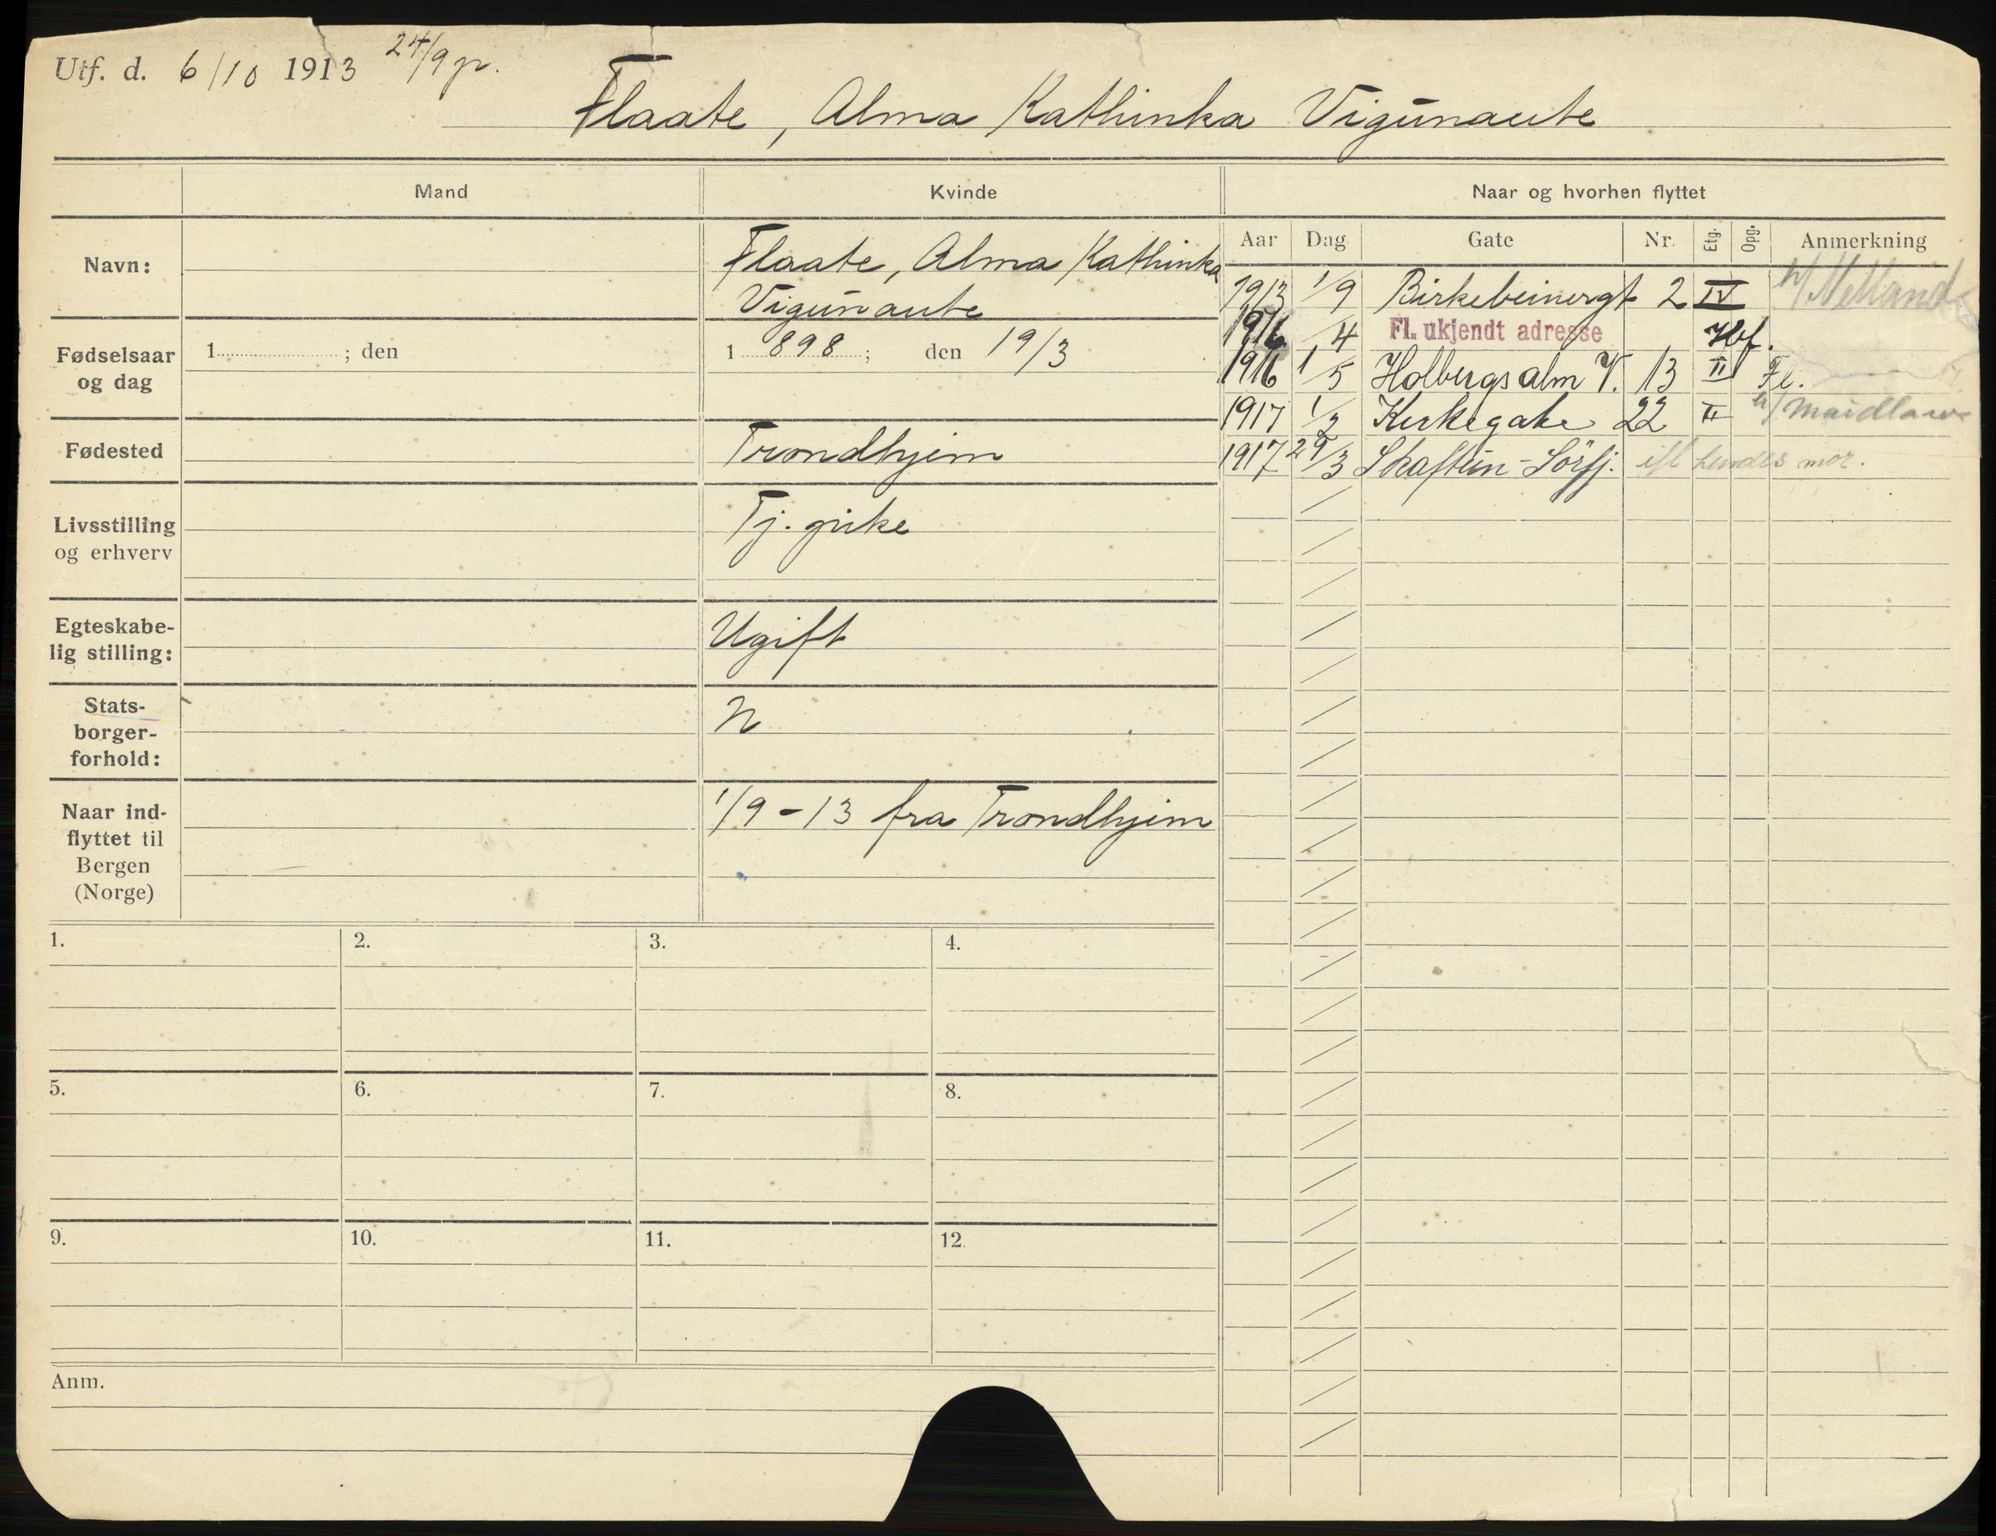 Utf. d. 6/10 1913 24/9 p.
Flaate, Alma Kathinka Vigunaute
Mand
Kvinde
Naar og hvorhen flyttet
Navn:
Flaate, Alma Kathinka
Vigunaute
Fødselsaar og dag
1 ; den
1 898 ; den 19/3
Fødested
Trondhjem
Livsstilling og erhverv
Tj. pike
Egteskabe-
lig stilling:
Ugift
Stats-
borger-
forhold:
N
Naar ind-
flyttet til
Bergen
(Norge)
1/9 - 13 fra Trondhjem
Aar Dag Gate Nr. Etg. Opg. Anmerkning
1913 1/9 Birkebeinergt 2 IV h/
1916 /4 Fl. ukjendt adresse Hbf.
1916 1/5 Holbergsalm V. 13 II Fl.
1917 1/2 Kirkegate 22 II h/
1917 29/3 Skaftun - Sörfj. ifl hendes mor.
1. 2. 3. 4.
5. 6. 7. 8.
9. 10. 11. 12
Anm.